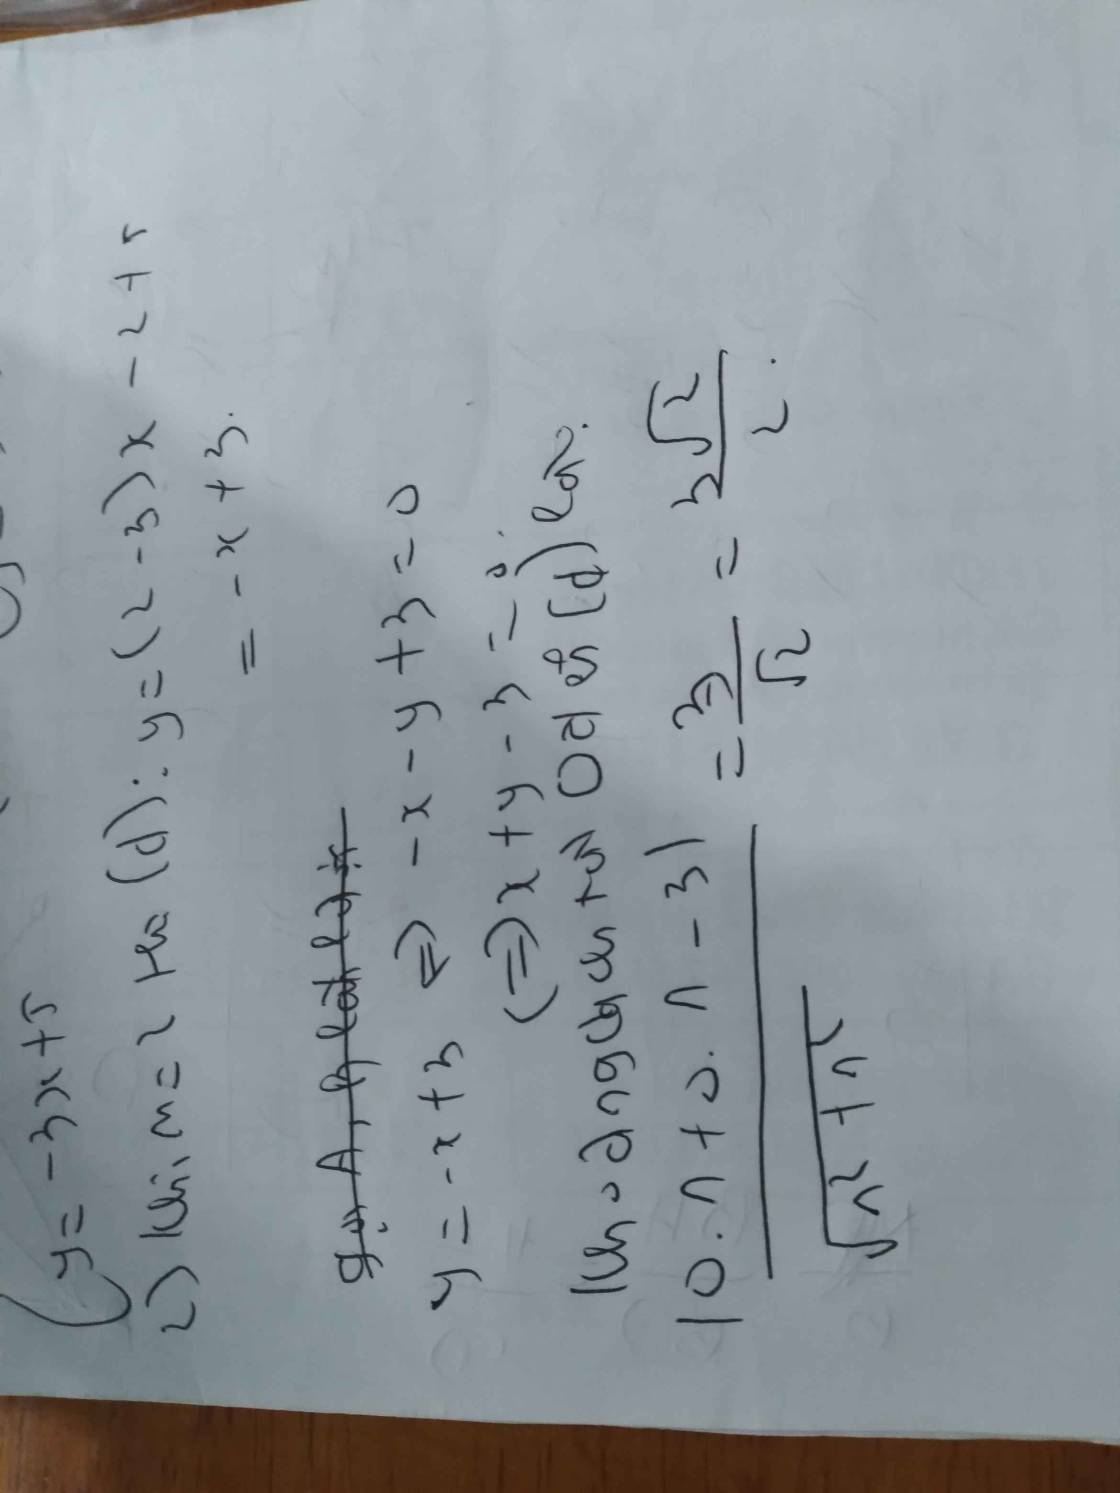 y = -3x + 5
2) Khi m = 2 thì (d): y = (2 - 3)x - 2 + 5
= -x + 3.
y = -x + 3 ⇔ -x - y + 3 = 0
(⇔) x + y - 3 = 0.
Khoảng cách từ O đến (d) là:
|0.1 + 0.1 - 3| / √(1² + 1²) = 3/√2 = 3√2/2.